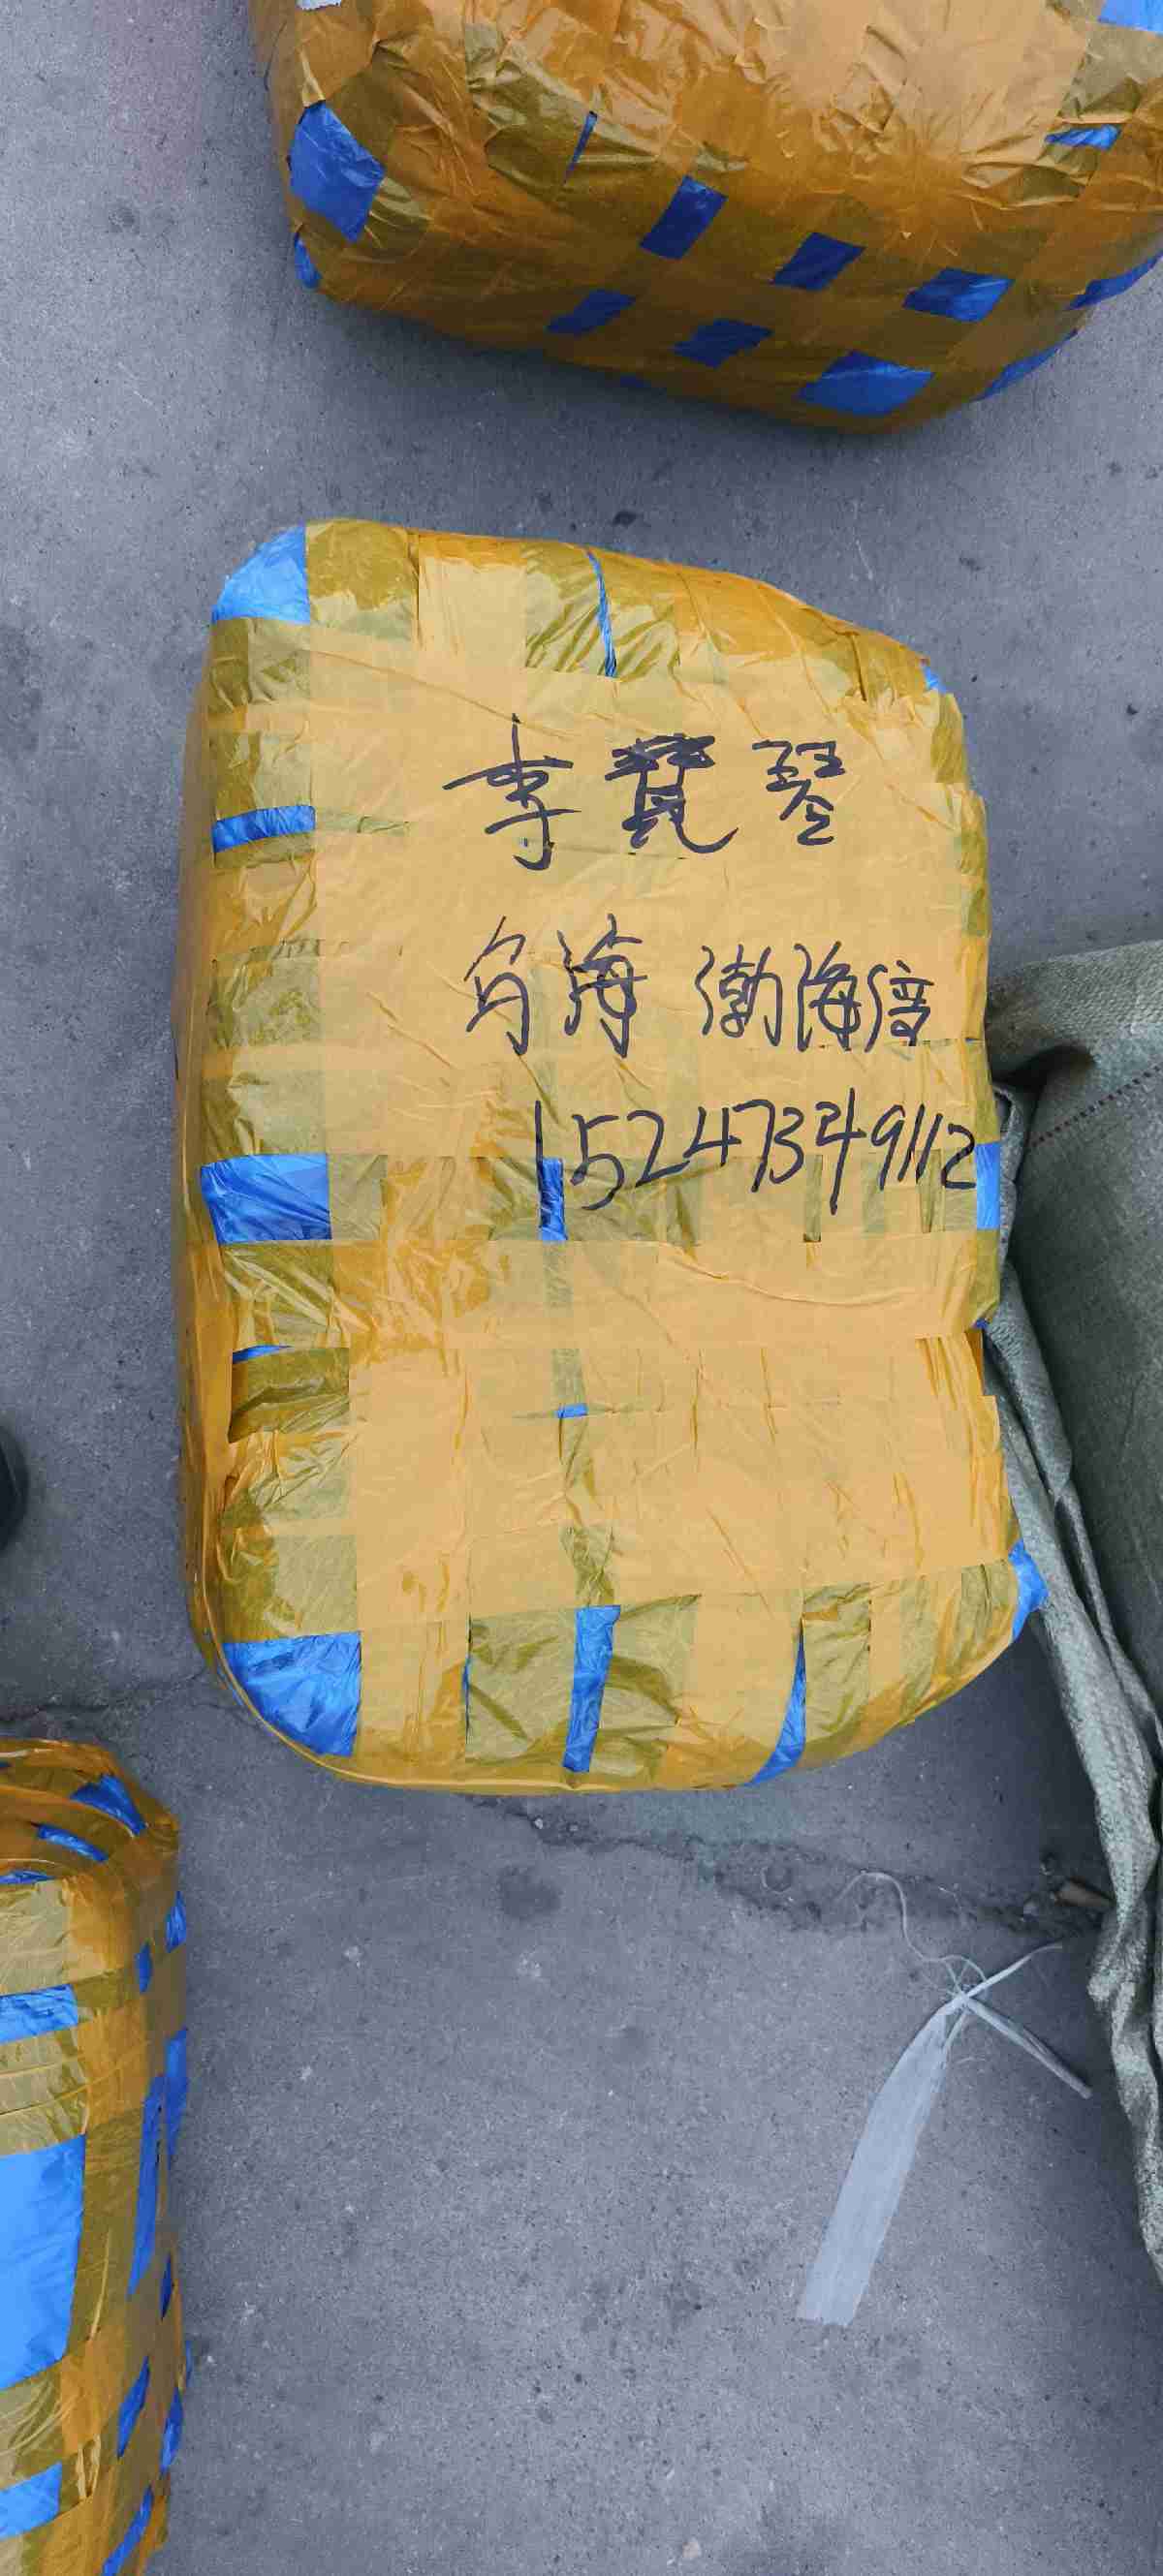 李 琴
乌海 渤海湾
15247349112